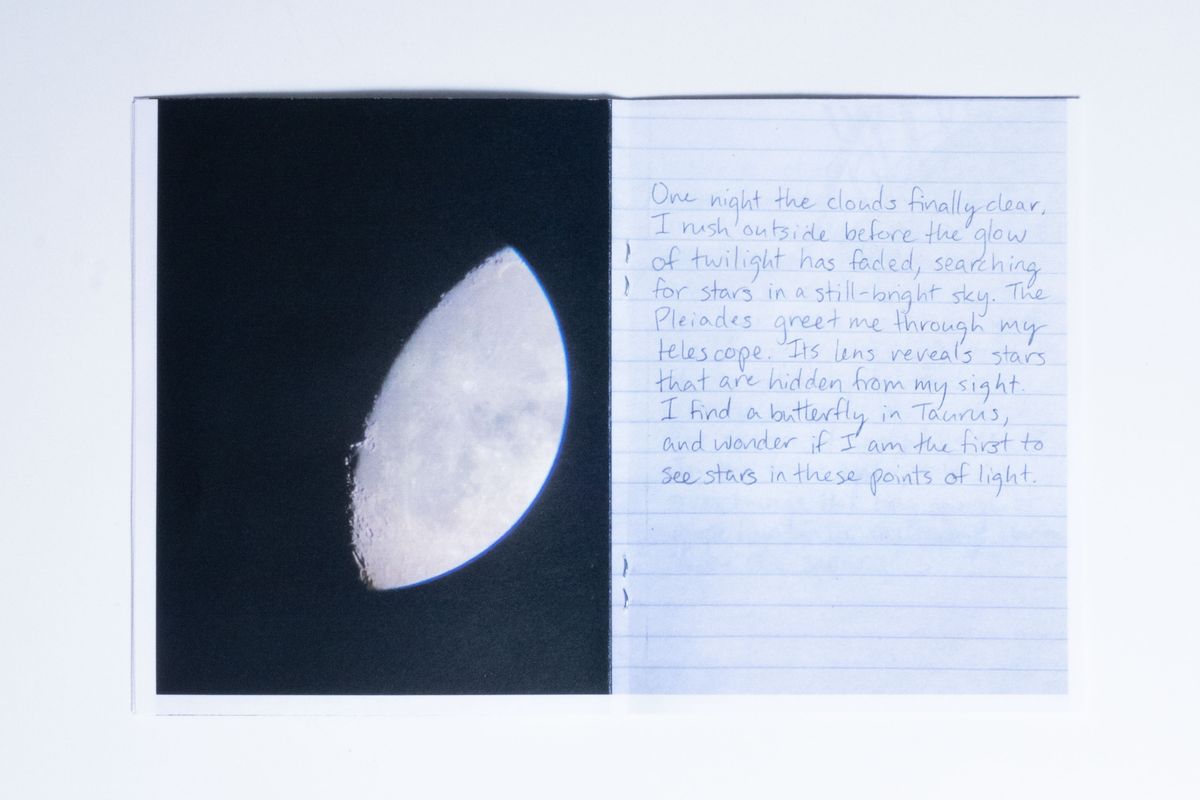 One night the clouds finally clear.
I rush outside before the glow
of twilight has faded, searching
for stars in a still-bright sky. The
Pleiades greet me through my
telescope. Its lens reveals stars
that are hidden from my sight.
I find a butterfly in Taurus,
and wonder if I am the first to
see stars in these points of light.